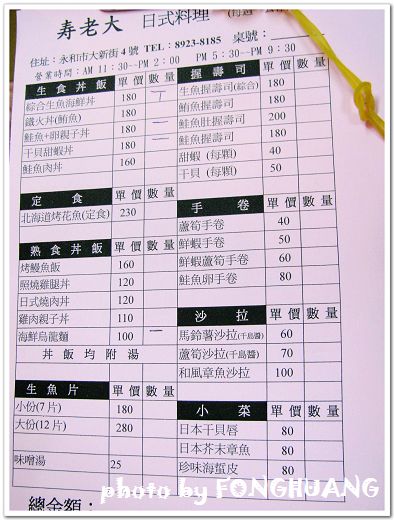 寿老大 日式料理
住址：永和市大新街4號 TEL：8923-8185 桌號：
營業時間：AM 11：30~PM 2：00 PM 5：30~PM 9：30
生食丼飯 單價 數量
綜合生魚海鮮丼 180
鐵火丼(鮪魚) 180
鮭魚+卵親子丼 180
干貝甜蝦丼 180
鮭魚肉丼 160
定食 單價 數量
北海道烤花魚(定食) 230
熟食丼飯 單價 數量
烤鰻魚飯 160
照燒雞腿丼 120
日式燒肉丼 120
雞肉親子丼 110
海鮮烏龍麵 100
丼飯均附湯
生魚片 單價 數量
小份(7片) 180
大份(12片) 280
味噌湯 25
總金額：
握壽司 單價 數量
生魚握壽司(綜合) 180
鮪魚握壽司 180
鮭魚肚握壽司 200
鮭魚握壽司 180
甜蝦 (每顆) 40
干貝 (每顆) 50
手卷 單價 數量
蘆筍手卷 40
鮮蝦手卷 50
鮮蝦蘆筍手卷 60
鮭魚卵手卷 80
沙拉 單價 數量
馬鈴薯沙拉(千島醬) 60
蘆筍沙拉(千島醬) 70
和風章魚沙拉 100
小菜 單價 數量
日本干貝唇 80
日本芥末章魚 80
珍味海蜇皮 80
photo by FONGHUANG